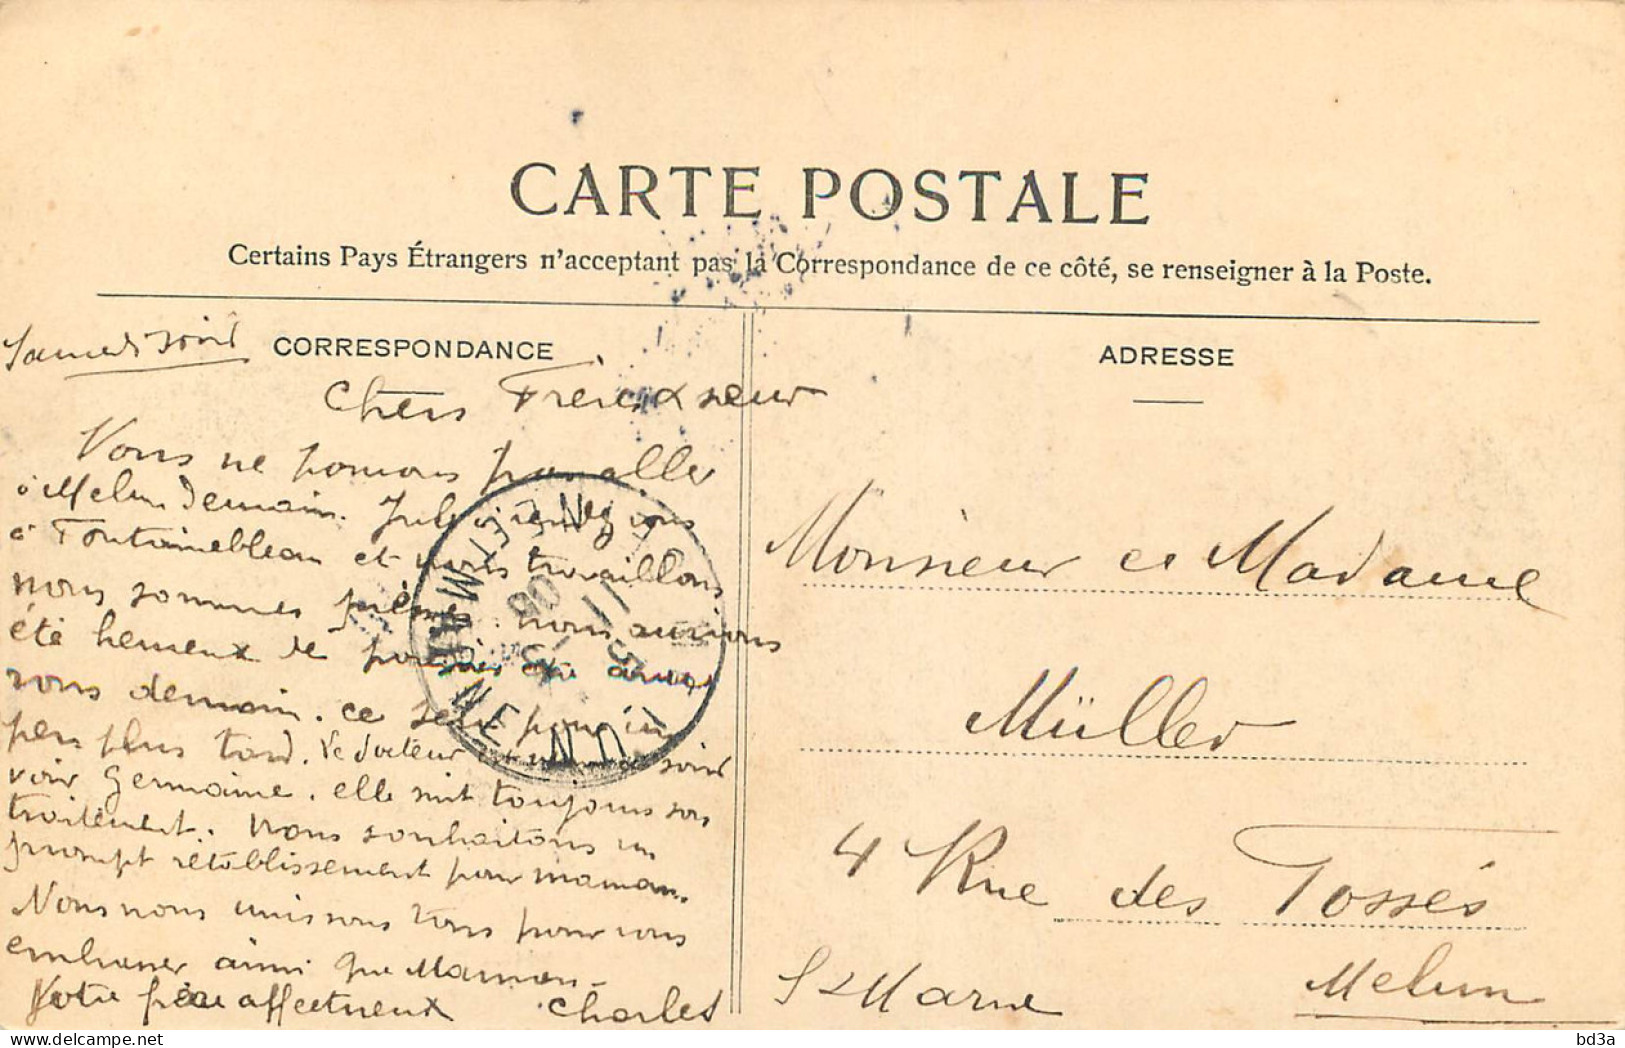 CARTE POSTALE
Certains Pays Étrangers n'acceptent pas la Correspondance de ce côté, se renseigner à la Poste.
CORRESPONDANCE
ADRESSE
Samedi soir
Chers Frère & sœur
Nous ne pouvons pas aller
à Melun demain. Jules vous
à Fontainebleau et nous travaillons
nous sommes nous aurions
été heureux de
vous demain. ce sera pour un
peu plus tard. Le docteur est soir
voir Germaine. elle suit toujours son
traitement. Nous souhaitons un
prompt rétablissement pour maman.
Nous nous unissons tous pour vous
embrasser ainsi que Maman
Votre frère affectueux Charles
Monsieur et Madame
Müller
4 Rue des Fossés
Melun
S & Marne
MELUN
SEINE ET MARNE
11
08
bd3a